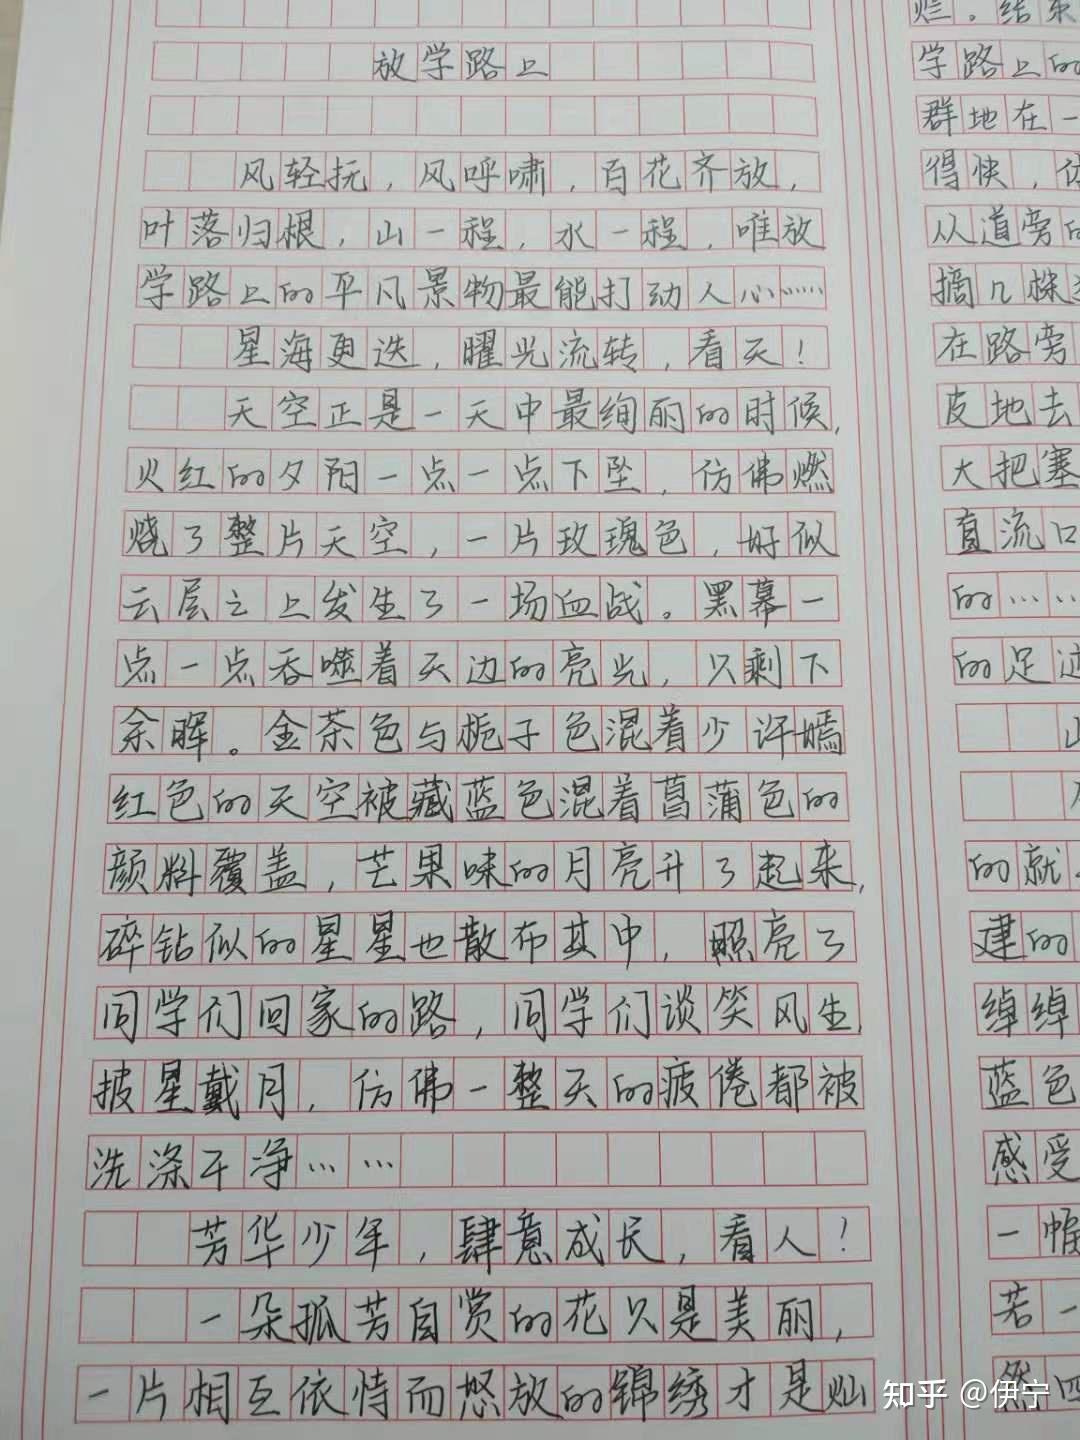 放学路上
风轻抚，风呼啸，百花齐放，
叶落归根，山一程，水一程，唯放
学路上的平凡景物最能打动人心……
星海更迭，曜光流转，看天！
天空正是一天中最绚丽的时候，
火红的夕阳一点一点下坠，仿佛燃
烧了整片天空，一片玫瑰色，好似
云层之上发生了一场血战。黑幕一
点一点吞噬着天边的亮光，只剩下
余晖。金茶色与栀子色混着少许嫣
红色的天空被藏蓝色混着菖蒲色的
颜料覆盖，芒果味的月亮升了起来，
碎钻似的星星也散布其中，照亮了
同学们回家的路，同学们谈笑风生，
披星戴月，仿佛一整天的疲倦都被
洗涤干净……
芳华少年，肆意成长，看人！
一朵孤芳自赏的花只是美丽，
一片相互依恃而怒放的锦绣才是灿
烂。结束
学路上的
群地在一
得快，
从道旁的
摘几株
在路旁
皮地去
大把塞
直流口
的……
的足迹
的就
建的
绰绰
蓝色
感受
一幅
若一
然四
知乎 @伊宁